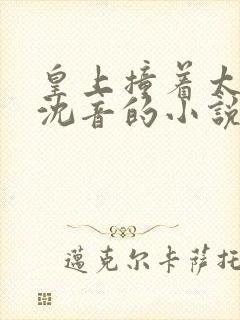 皇上撞着太
沈音的小説
邁克尔卡薩托